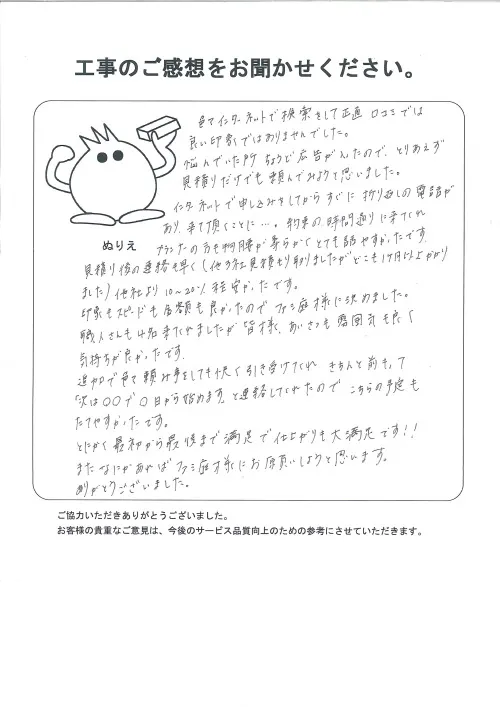 工事のご感想をお聞かせください。
色々インターネットで検索をして正直口コミでは
良い印象ではありませんでした。
悩んでいた所ちょうど広告が入ったので、とりあえず
見積りだけでも頼んでみようと思いました。
インターネットで申し込みをしてからすぐに折り返しの電話が
あり、来て頂くことに…。約束の時間通りに来てくれ
プランナーの方も物腰が柔らかくとても話やすかったです。
ぬりえ
見積り後の連絡も早く(他3社見積もり取りましたがどこも1ヶ月以上かかり
ました)他社より10~20%程安かったです。
印象もスピードも金額も良かったのでファミ庭様に決めました。
職人さんも4名来てくれましたが皆様、あいさつも雰囲気も良く
気持ちが良かったです。
追加で色々頼み事をしても快く引き受けてくれ きちんと前もって
「次は〇〇で〇日から始めます」と連絡してくれたので こちらの予定も
たてやすかったです。
とにかく最初から最後まで満足で仕上がりも大満足です!!
またなにかあればファミ庭様にお願いしようと思います。
ありがとうございました。
ご協力いただきありがとうございました。
お客様の貴重なご意見は、今後のサービス品質向上のための参考にさせていただきます。